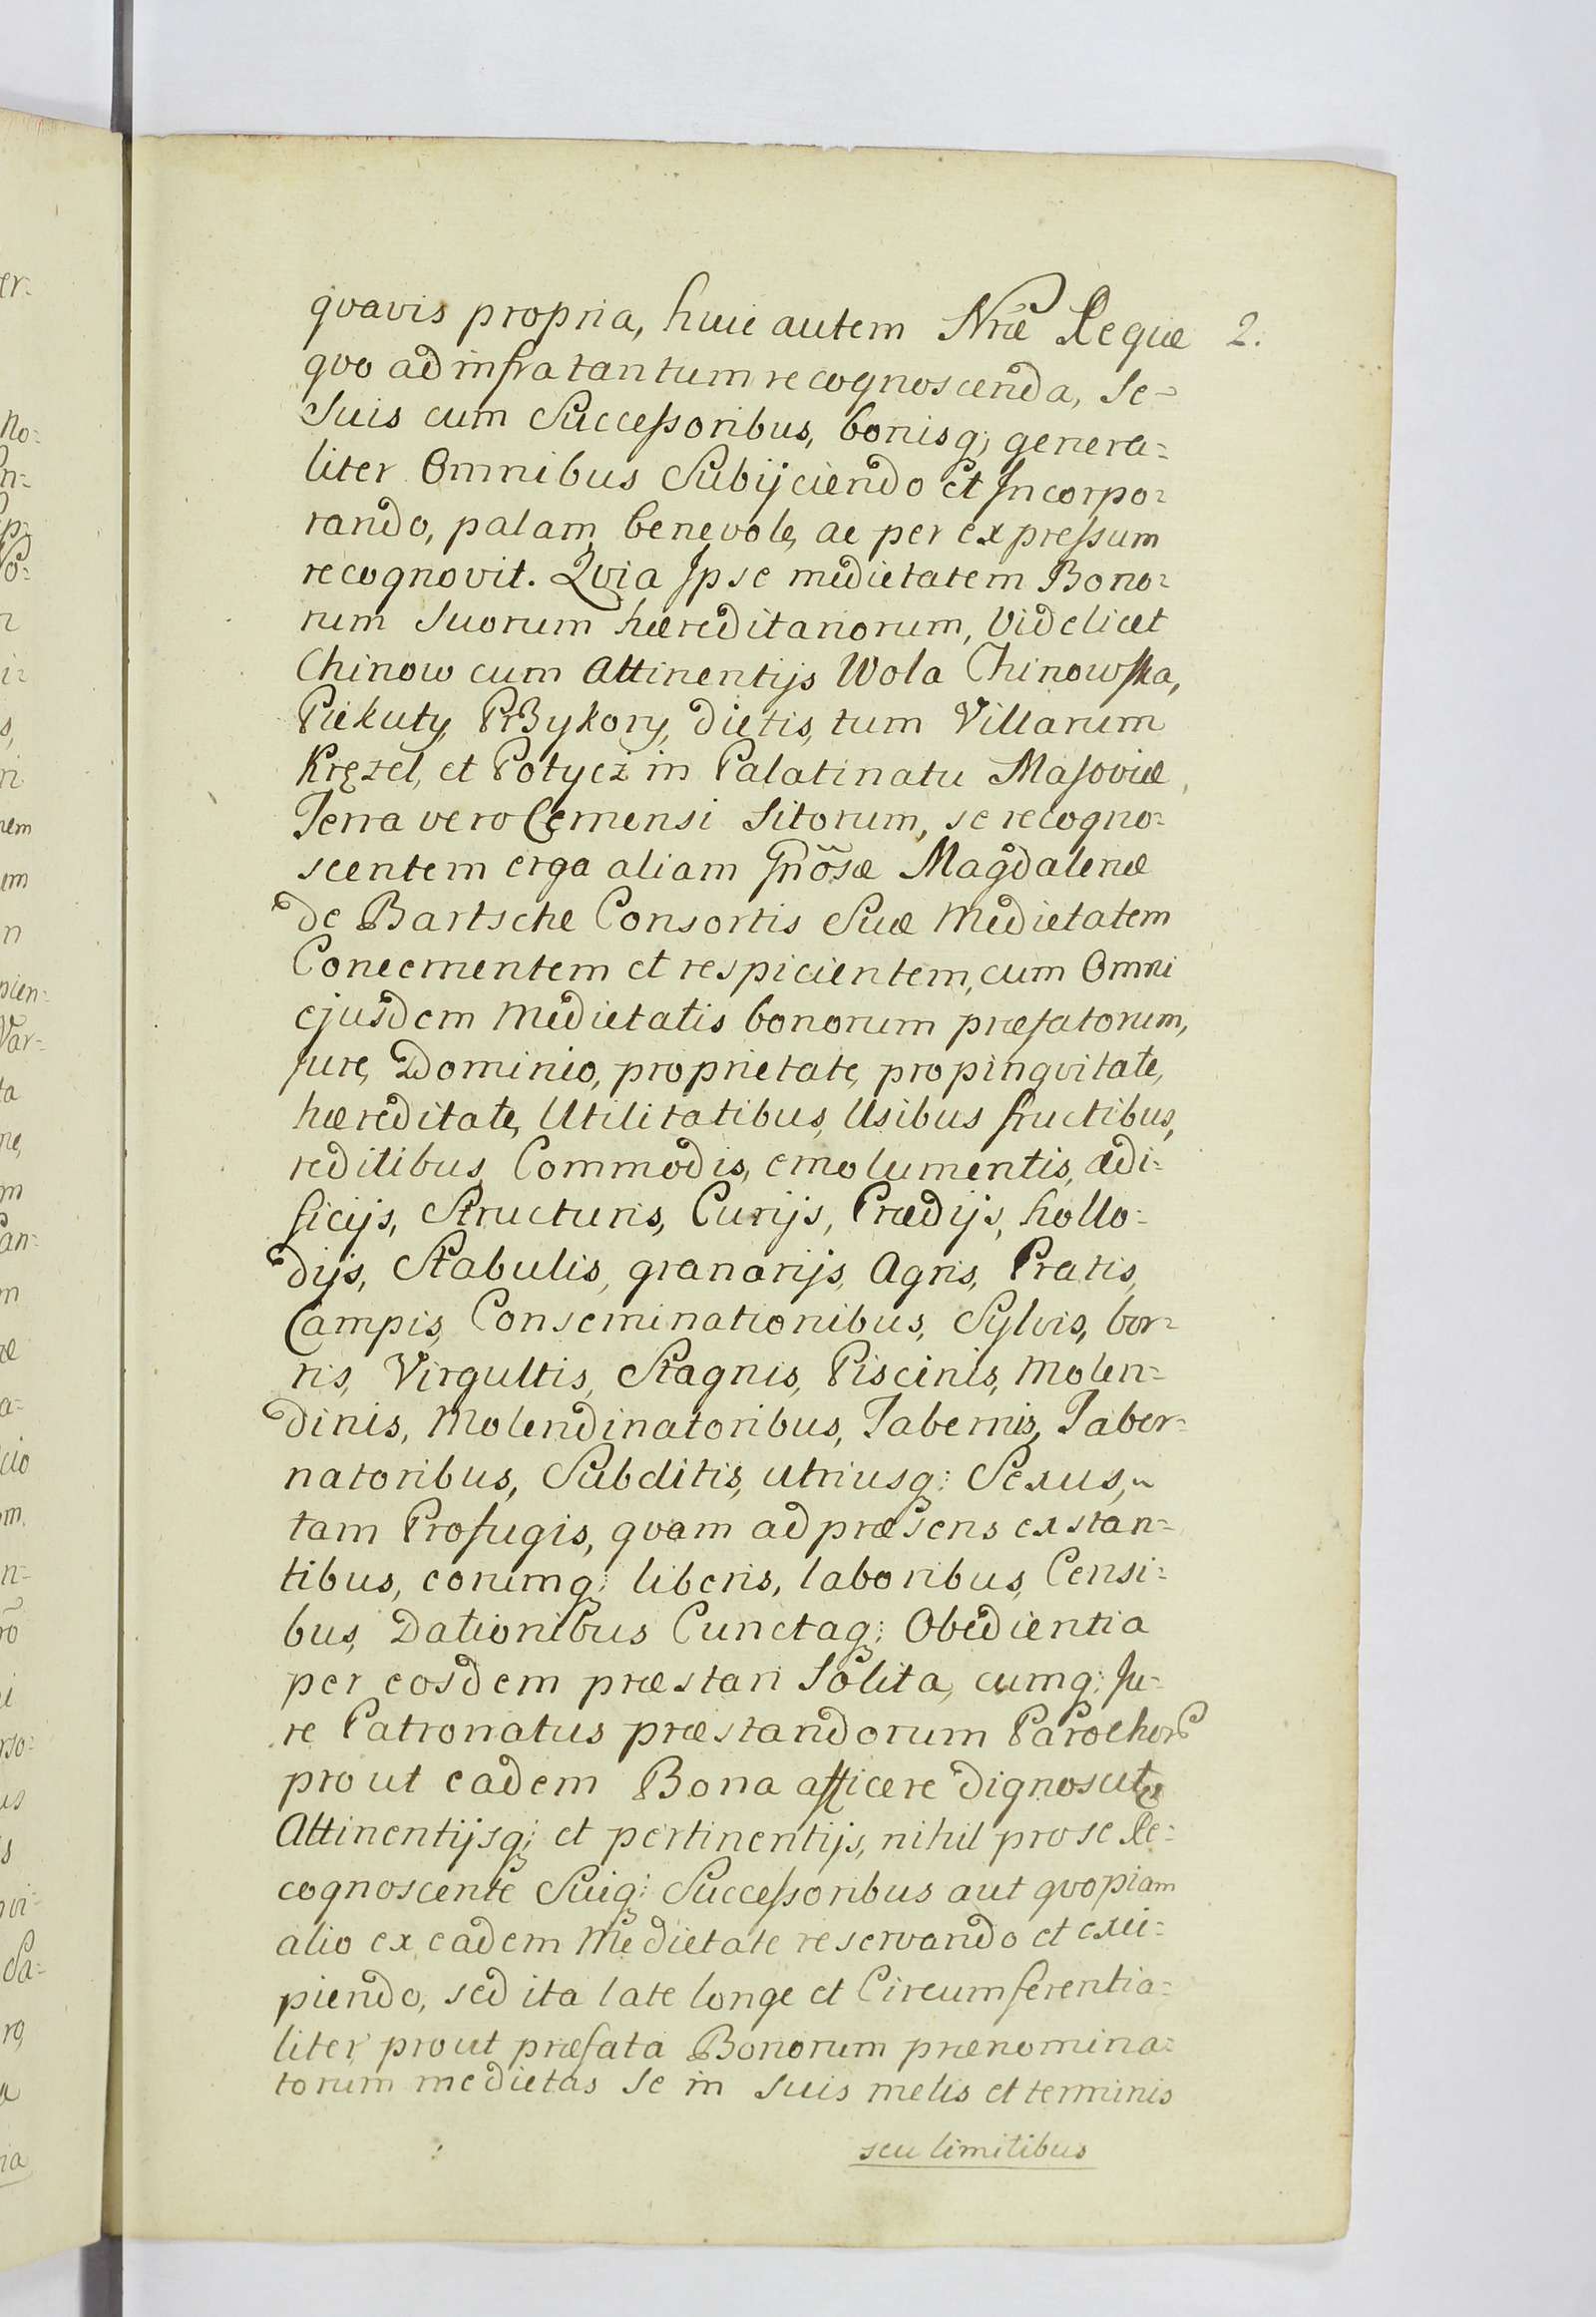 qvavis propria, huic autem Nr̃æ Reguæ 2.
qvo ad infra tantum recognoscenda, Se=
Suis cum Successoribus, bonisq; genera=
liter Omnibus Subijciendo et Incorpo=
rando, palam, benevole, ac per expressum
recognovit. Qvia Ipse medietatem Bono=
rum Suorum hæreditariorum, Videlicet
Chinow cum Attinentijs Wola Chinowska,
Piekuty, PrBykory, dictis, tum Villarum
Kręzel, et Potycż in Palatinatu Masoviæ,
Terra vero Cernensi Sitorum, se recogno=
scentem erga aliam Gñõsæ Magdalenæ
de Bartsche Consortis Suæ Medietatem
Concernentem et respicientem, cum Omni
ejusdem Medietatis bonorum præfatorum,
Jure, Dominio, proprietate, propinqvitate,
hæreditate, Utilitatibus, Usibus fructibus,
reditibus, Commodis, emolumentis, ædi=
ficijs, Structuris, Curijs, Prædijs, hollo=
dijs, Stabulis, granarijs, Agris, Pratis,
Campis, Conseminationibus, Sylvis, bor=
ris, Virgultis, Stagnis, Piscinis, Molen=
dinis, Molendinatoribus, Tabernis, Taber=
natoribus, Subditis, utriusq; Sexus,
tam Profugis, qvam ad præsens exstan=
tibus, eorumq; liberis, laboribus, Censi=
bus, Dationibus Cunctaq; Obedientia
per eosdem præstari Solita, cumq; Ju=
re Patronatus præstandorum Parochor
prout eadem Bona afficere dignoscitur
Attinentijsq; et pertinentijs, nihil pro se Re=
cognoscente Suiq; Successoribus aut qvopiam
alio ex eadem Medietate reservando et exci=
piendo, sed ita late longe et Circumferentia=
liter, prout præfata Bonorum prænomina=
torum medietas Se in Suis metis et terminis
seu limitibus